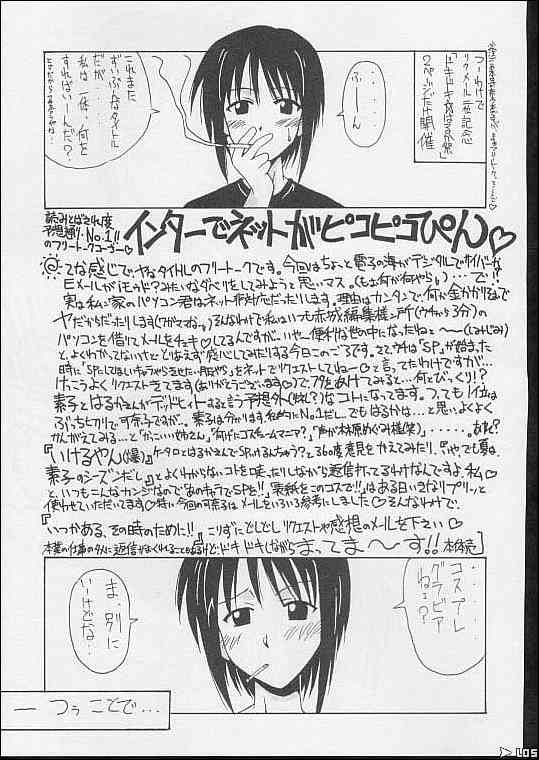 つーわけで
リクメール一位記念
「ドキドキ♡はるか祭」
2ページだけ開催
ふーん
これまた
ずいぶんなタイトル
だが…
私は一体、何を
すればいーんだ？
読みとばされ度
予想通りNo.1!!
のフリートークコーナー♡
インターでネットがピコピコぴん♡
てな感じでヤなタイトルのフリートークです。今回はちょっと電子の海がデジタルでサイバーが
EメールがiモードD?みたいなダベリをしてみようと思いマス。(もぉ何が何やら)…で!!
実は私ン家のパソコン君はネット非対応だったりします。理由はカンタンで、何か金かかりそで
ヤだからだったりします(ワガママねっ)。そんなわけで私はいつも赤城編集様ン所(ウチから3分)の
パソコンを借りてメールをチェキ♡してるんですが、いや〜便利な世の中になったねェ〜〜(しみじみ)
と、よくわかってないけどとりあえず感心してみたりする今日このごろです。さて、ウチは「SP」が始まった
時に「SPにしてほしいキャラやらせたい服やら」をネットでリクエストしてね〜♡と言ってたわけですが…
けっこうよくリクエストきてます(ありがとうございます♡)で、フタをあけてみると…何とびっくり!?
素子とはるかさんがデッドヒートすると言う予想外(失礼?)なコトになってます。つっても1位は
かんがえてみる…と「かっこいいおねぇさん」「何げにコスゲームマニア?」「声が林原めぐみ様(笑)」……あれ?
『いけるやん(爆)』ケータロとはるかさんでSP出るんちゃう?と360度意見をかえてみたり、『いやでも夏は、
素子のシーズンだし』とよくわからないコトを言ったりしながら返信打ってるわけなんですよ、私♡
と、いつもこんなカンジなので「あのキャラでSPを!!」「表紙をこのコスで!!」はある日いきなりプリッと
使わせていただいてます♡特に今回の可奈子はメールをいろいろ参考にしました♡そんなわけで、
『いつかある、その時のために!!』こりずにどしどしリクエストや感想のメールを下さい♡
本業の仕事のタメに返信がおくれることもあるけど、ドキドキしながらまってま〜〜す!!
コスプレ
グラビア
ねェ？
ま、別に
いいけどな…
ー つぅ ことで…
105